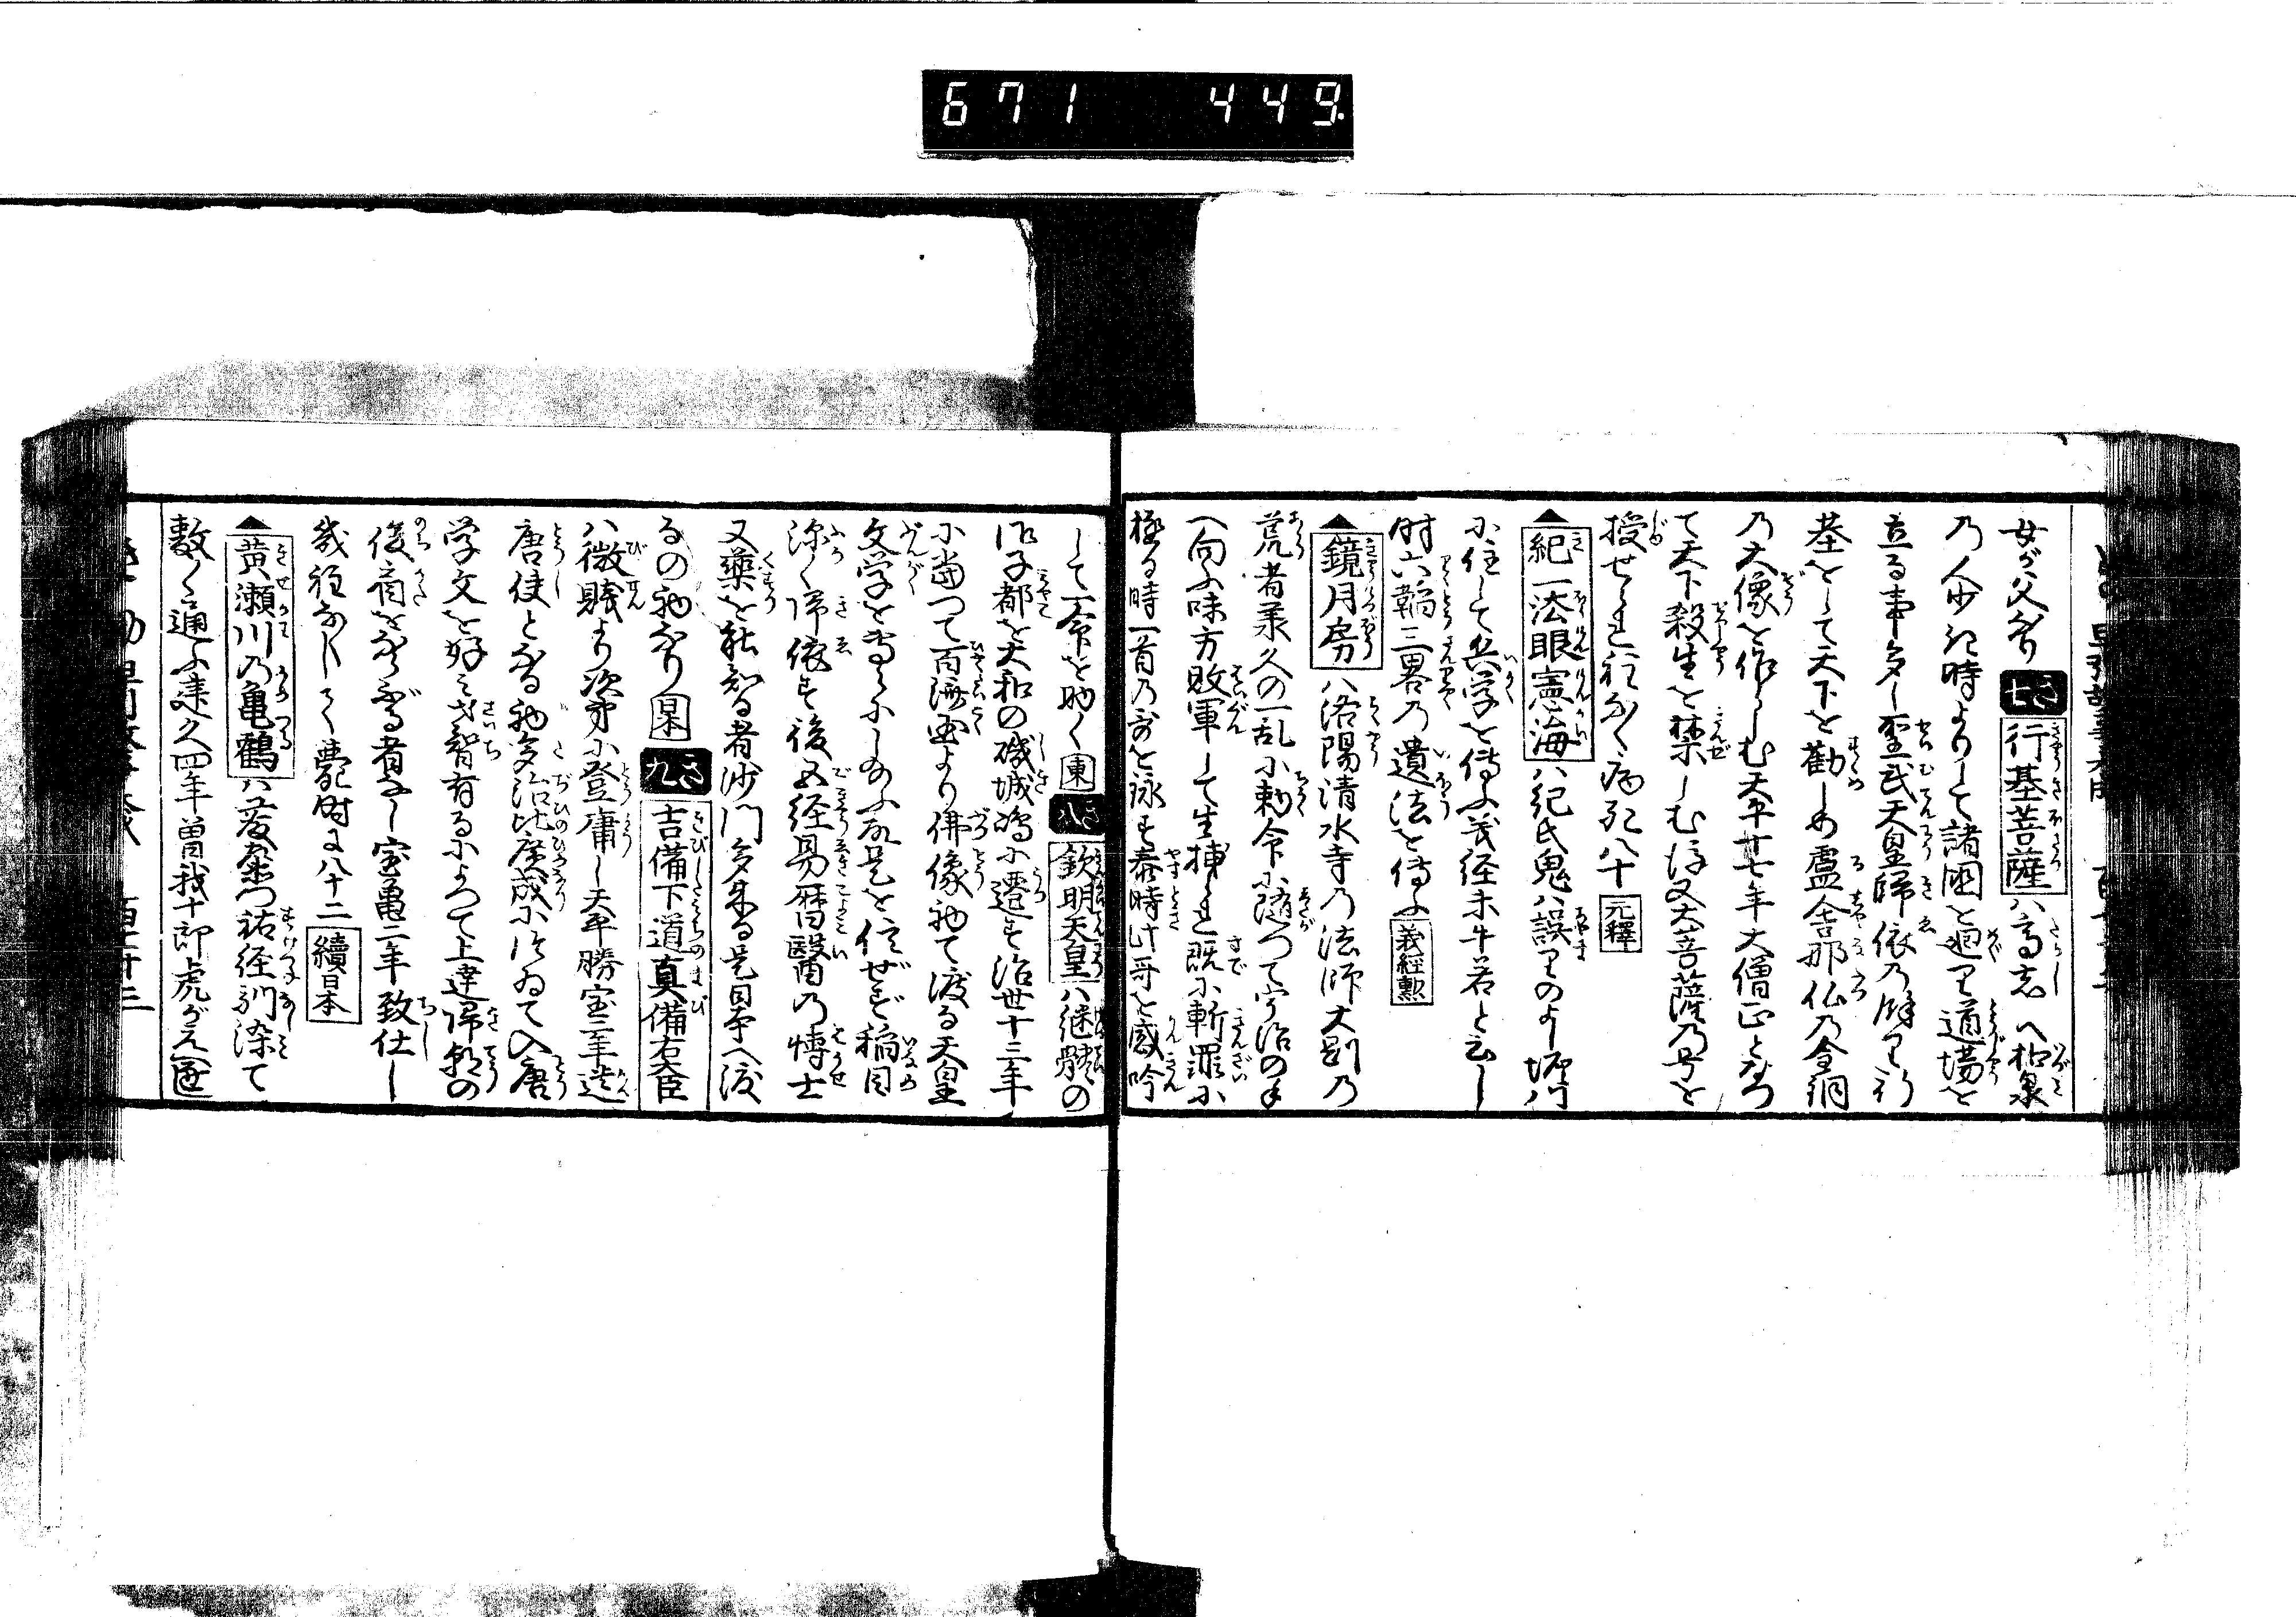 671 449.
女が父なり 七き 行基菩薩ハ高志へ和泉
乃人少き時よりして諸国を廻里道場を
立る事多し聖武天皇帰依乃餘り行
基をして天下を勧しめ盧舎那仏乃金銅
乃大像を作らしむ天平十七年大僧正となつ
て天下殺生を禁しむ後又大菩薩乃号を
授せられ程なく病死八十 元釋
▲紀一法眼憲海ハ紀氏鬼ハ誤里のよし堀川
に住して兵学を傳ふ義経未牛若と云し
時六韜三畧乃遺法を傳ふ 義經勲
▲鏡月房ハ洛陽清水寺乃法師大剛乃
荒者承久の乱に勅命に随つて宇治の手
へ向ふ味方敗軍して生捕られ既に斬罪に
極る時一首乃哥を詠す泰時此哥を感吟
して一命を助く 東 八き 欽明天皇ハ継體の
御子都を大和の磯城嶋に遷す治世十三年
に當つて百済国より佛像初て渡る天皇
文学を専らにしたまふ故是を信ぜず稲目
深く帰依す後五経易暦醫乃博士
又薬を能知る者沙門多来る是日本へ渡
るの初なり 日本 九き 吉備下道真備右大臣
ハ微賤より次第に登庸し天平勝宝三年遣
唐使となる初多治比廣成にしたがひて入唐
学文を好み才智有るによつて上達帰朝の
後肩をならぶる者なし宝亀二年致仕し
幾程なくして薨時に八十二 續日本
▲黄瀬川乃亀鶴ハ工藤左衛門祐経馴染て
数々通ふ建久四年曽我十郎虎が元へ通